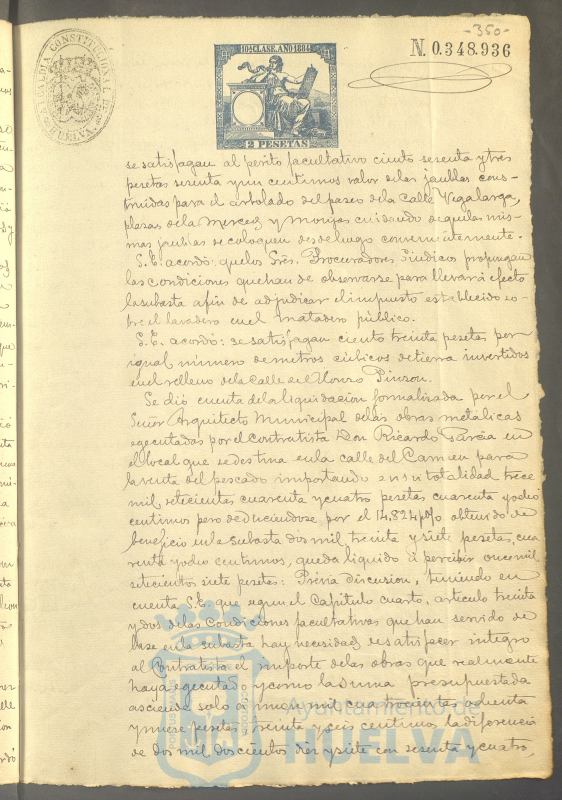 -350-
ALCALDIA CONSTITUCIONAL DE HUELVA
10ª CLASE. AÑO 1884
2 PESETAS
N. 0.348.936
se satisfagan al perito facultativo ciento sesenta y tres
pesetas sesenta y un centimos valor de las jaulas cons-
truidas para el arbolado del paseo de la Calle Vegalarga,
plazas de la Merced y Monjas cuidando de que las mis-
mas jaulas se coloquen desde luego convenientemente.
S.E. acordó: que los Sres. Procuradores Sindicos propongan
las condiciones que han de observarse para llevar á efecto
la subasta afin de adjudicar el impuesto establecido so-
bre el lavadero en el matadero público.
S.E. acordó: se satisfagan ciento treinta pesetas por
igual número de metros cúbicos de tierra invertidos
en el relleno de la Calle de Alonzo Pinzon.
Se dió cuenta de la liquidacion formalizada por el
Señor Arquitecto Municipal de las obras metálicas
egecutadas por el Contratista Don Ricardo Garcia en
el local que se destina en la calle del Carmen para
la venta del pescado importando en su totalidad trece
mil setecientas cuarenta y cuatro pesetas cuarenta y ocho
centimos pero deduciendose por el 14,824 p% obtenido de
beneficio en la subasta dos mil treinta y siete pesetas, cua
renta y ocho centimos, queda liquido á percibir once mil
setecientos siete pesetas: Prévia discusion, teniendo en
cuenta S.E. que segun el Capitulo cuarto, articulo treinta
y dos de las Condiciones facultativas que han servido de
base en la subasta hay necesidad de satisfacer integro
al Contratista el importe de las obras que realmente
haya egecutado y como la suma presupuestada
asciende solo á nueve mil cuatrocientas ochenta
y nueve pesetas treinta y seis centimos la diferencia
de dos mil doscientos diez y siete con sesenta y cuatro,
Ayuntamiento de
HUELVA